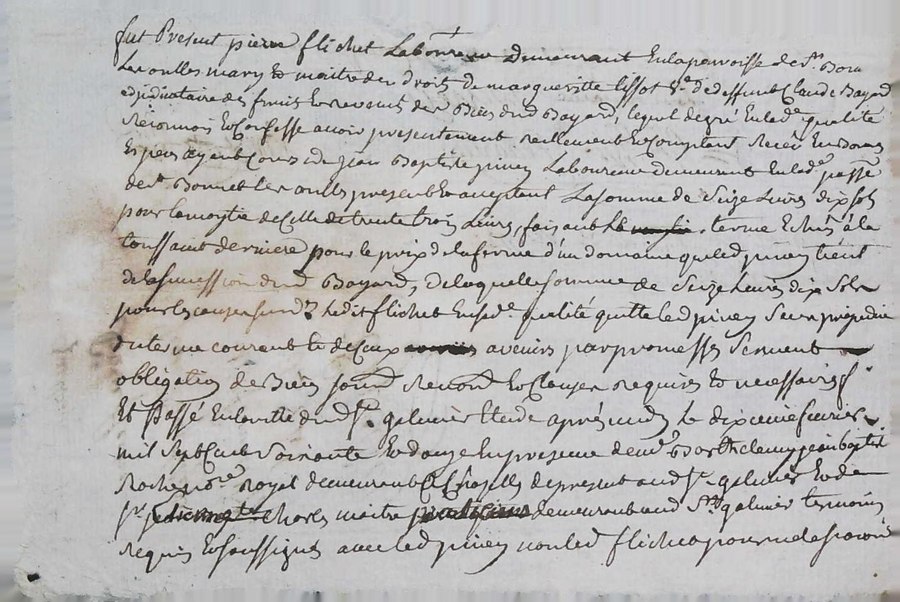 fut Present pierre flichet Laboureur Demeurant En la parroisse de St. Bonn
Les oulles mary & maitre des droits de margueritte tissot Ve. de deffunt Claude Bayard
adjudicataire des fruits & revenus des Biens dud Bayard, lequel de gré En lad.e qualité
Reconnois & Confesse avoir presentement reellement & Comptant Receu En Bonnes
Espèces ayant Cours de Jean Baptiste piney Laboureur demeurant En lad.e passe
de St. Bonnet Les oulles present & acceptant La somme de Seize Livres dix sols
pour la moytié de Celle de trente trois Livres, faisant le terme Echeu à la
toussaint derniere pour le prix de la ferme d'un domaine que led piney tient
de la succession dud Bayard, de laquelle somme de Seize Livres dix Sols
pour les causes susd. Ledit flichet En sad.e qualité quitte led piney Sans préjudice
du terme courant & de Ceux avenirs par promesses Serment
obligation de Biens soumd. Renond. & Clauses requises & necessaires f.
Et Passé En la ville dud St. galmier Etude après midy le dixieme fevrier
mil Sept Cent Soixante & douze En presence de me. Barthelemy jean baptist
Roche no.re Royal demeurant à Chazelles de present aud St. galmier & de
Sr. Charles maitre demeurant aud St. galmier temoins
Requis & Soussignés avec led piney non led flichet pour ne le scavoir